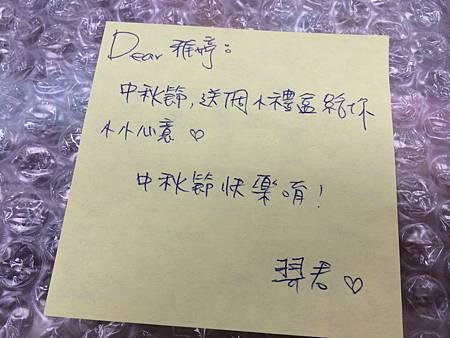 Dear 雅婷:
中秋節,送個小禮盒給你
小小心意♡
中秋節快樂唷!
君♡